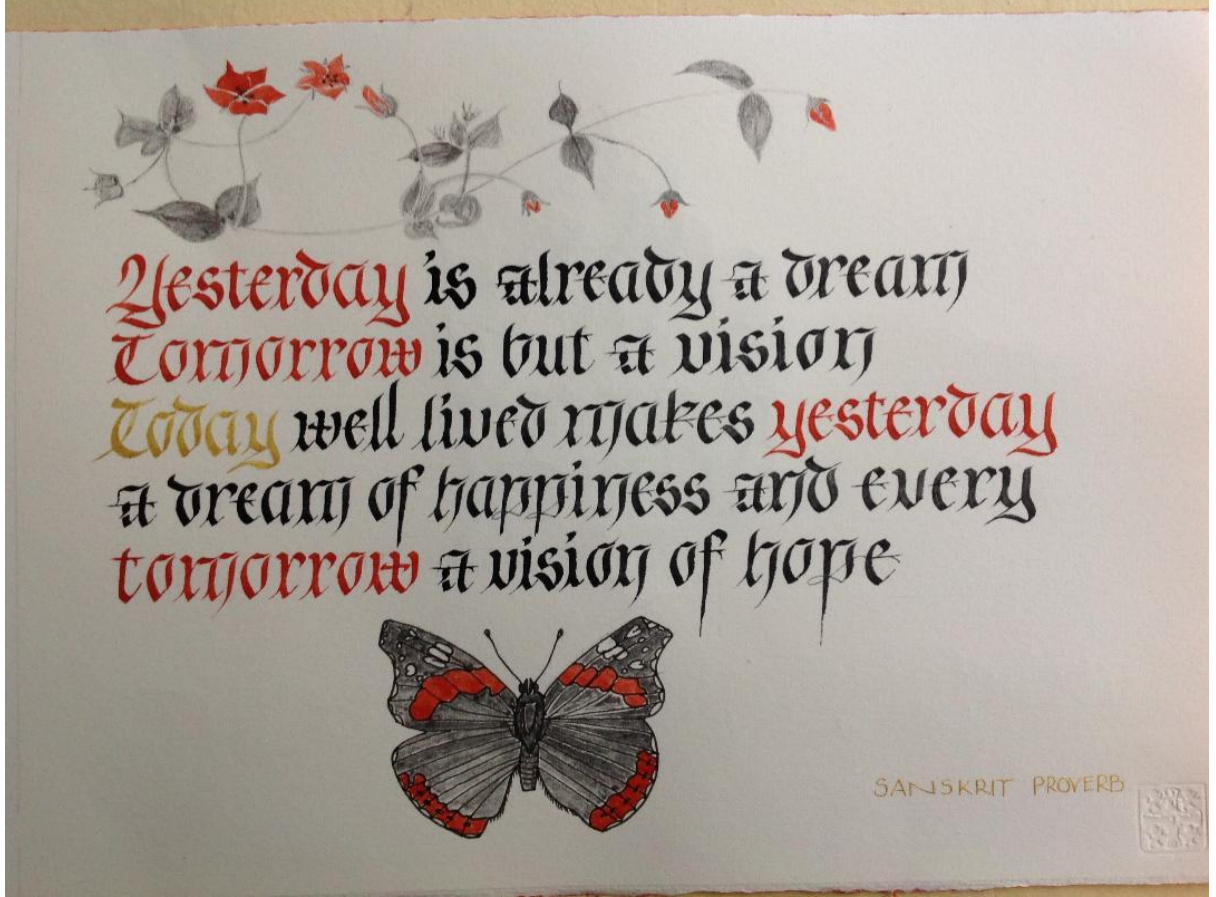 Yesterday is already a dream
Tomorrow is but a vision
Today well lived makes yesterday
a dream of happiness and every
tomorrow a vision of hope
SANSKRIT PROVERB